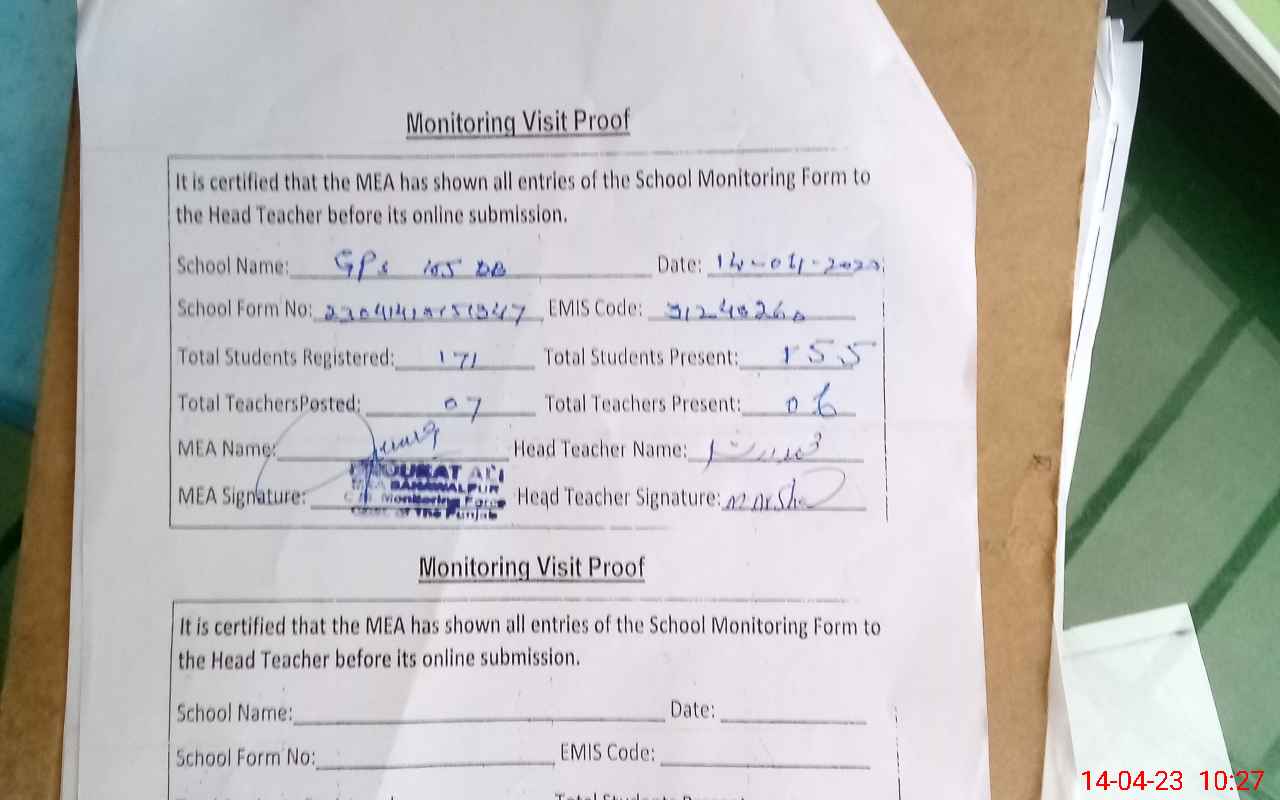 Monitoring Visit Proof
It is certified that the MEA has shown all entries of the School Monitoring Form to
the Head Teacher before its online submission.
School Name: GPS 105 DB Date: 14-04-2023
School Form No: EMIS Code:
Total Students Registered: 171 Total Students Present: 155
Total TeachersPosted: 07 Total Teachers Present: 06
MEA Name: Head Teacher Name:
MEA Signature: Head Teacher Signature:
SHOUKAT ALI
MEA BAHAWALPUR
Monitoring Force
Govt of The Punjab
Monitoring Visit Proof
It is certified that the MEA has shown all entries of the School Monitoring Form to
the Head Teacher before its online submission.
School Name: Date:
School Form No: EMIS Code:
Total Students Present
14-04-23 10:27